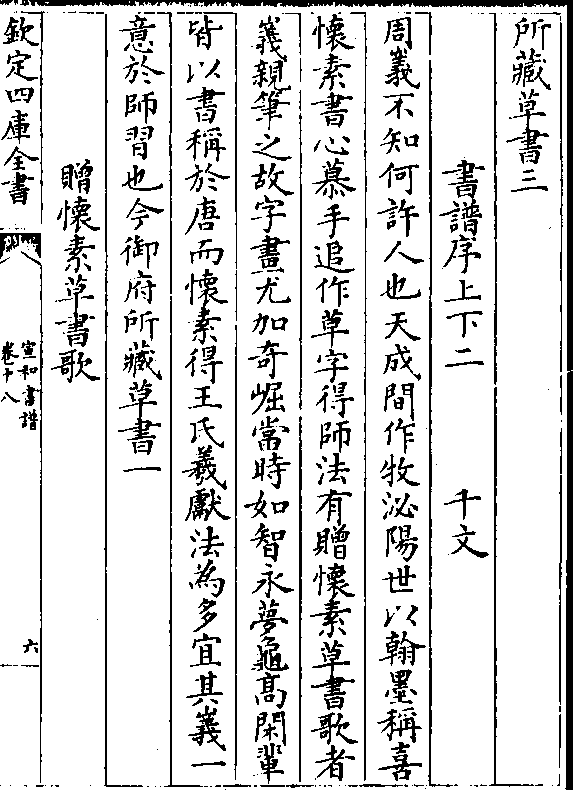 所藏草書三
書譜序上下二　千文
周㠖不知何許人也天成間作牧泌陽世以翰墨稱喜
懷素書心慕手追作草字得師法有贈懷素草書歌者
㠖親筆之故字畫尤加奇崛當時如智永夢龜高閑輩
皆以書稱於唐而懷素得王氏羲獻法為多宜其㠖一
意於師習也今御府所藏草書一
贈懷素草書歌
欽定四庫全書
宣和書譜
卷十八
六